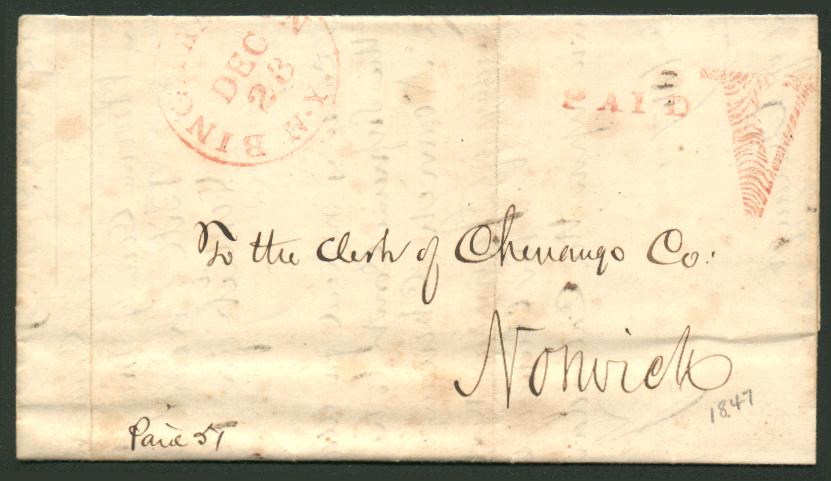 BINGHAMTON N.Y.
DEC
28
PAID
V
To the Clerk of Chenango Co:
Norwich
1847
Paid 5